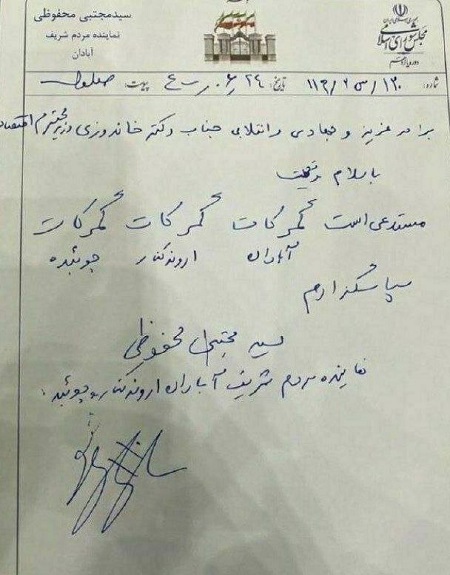 سیدمجتبی محفوظی
نماینده مردم شریف
آبادان
جمهوری اسلامی ایران
مجلس شورای اسلامی
شماره: تاریخ: پیوست:
برادر عزیز و جهادی و انقلابی جناب دکتر خاندوزی وزیر محترم اقتصاد
باسلام و تحیت
مستدعی است گمرکات گمرکات گمرکات
آبادان اروندکنار چوئبده
سپاسگزارم
سید مجتبی محفوظی
نماینده مردم شریف آبادان اروندکنار و چوئبده